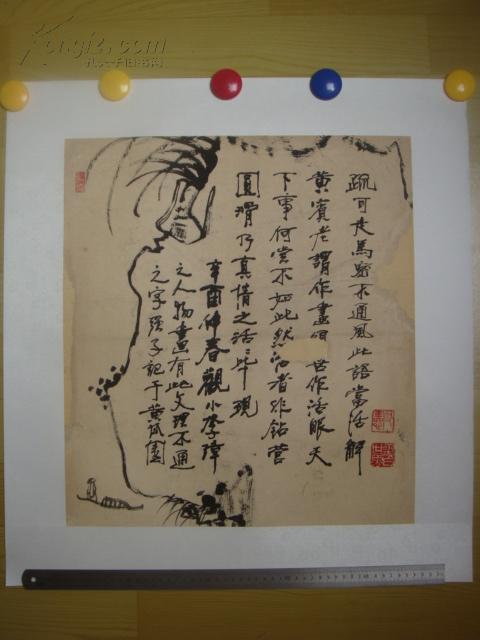 Kongfz.com
孔夫子旧书网
疏可走馬密不通風此語當活解
黄賓老謂作畫 世作活眼天
下事何嘗不如此然 者非鉆营
圆滑乃真情之活 現
辛酉仲春觀小李璋
之人物畫有此文理不通
之字 子記于黄 園